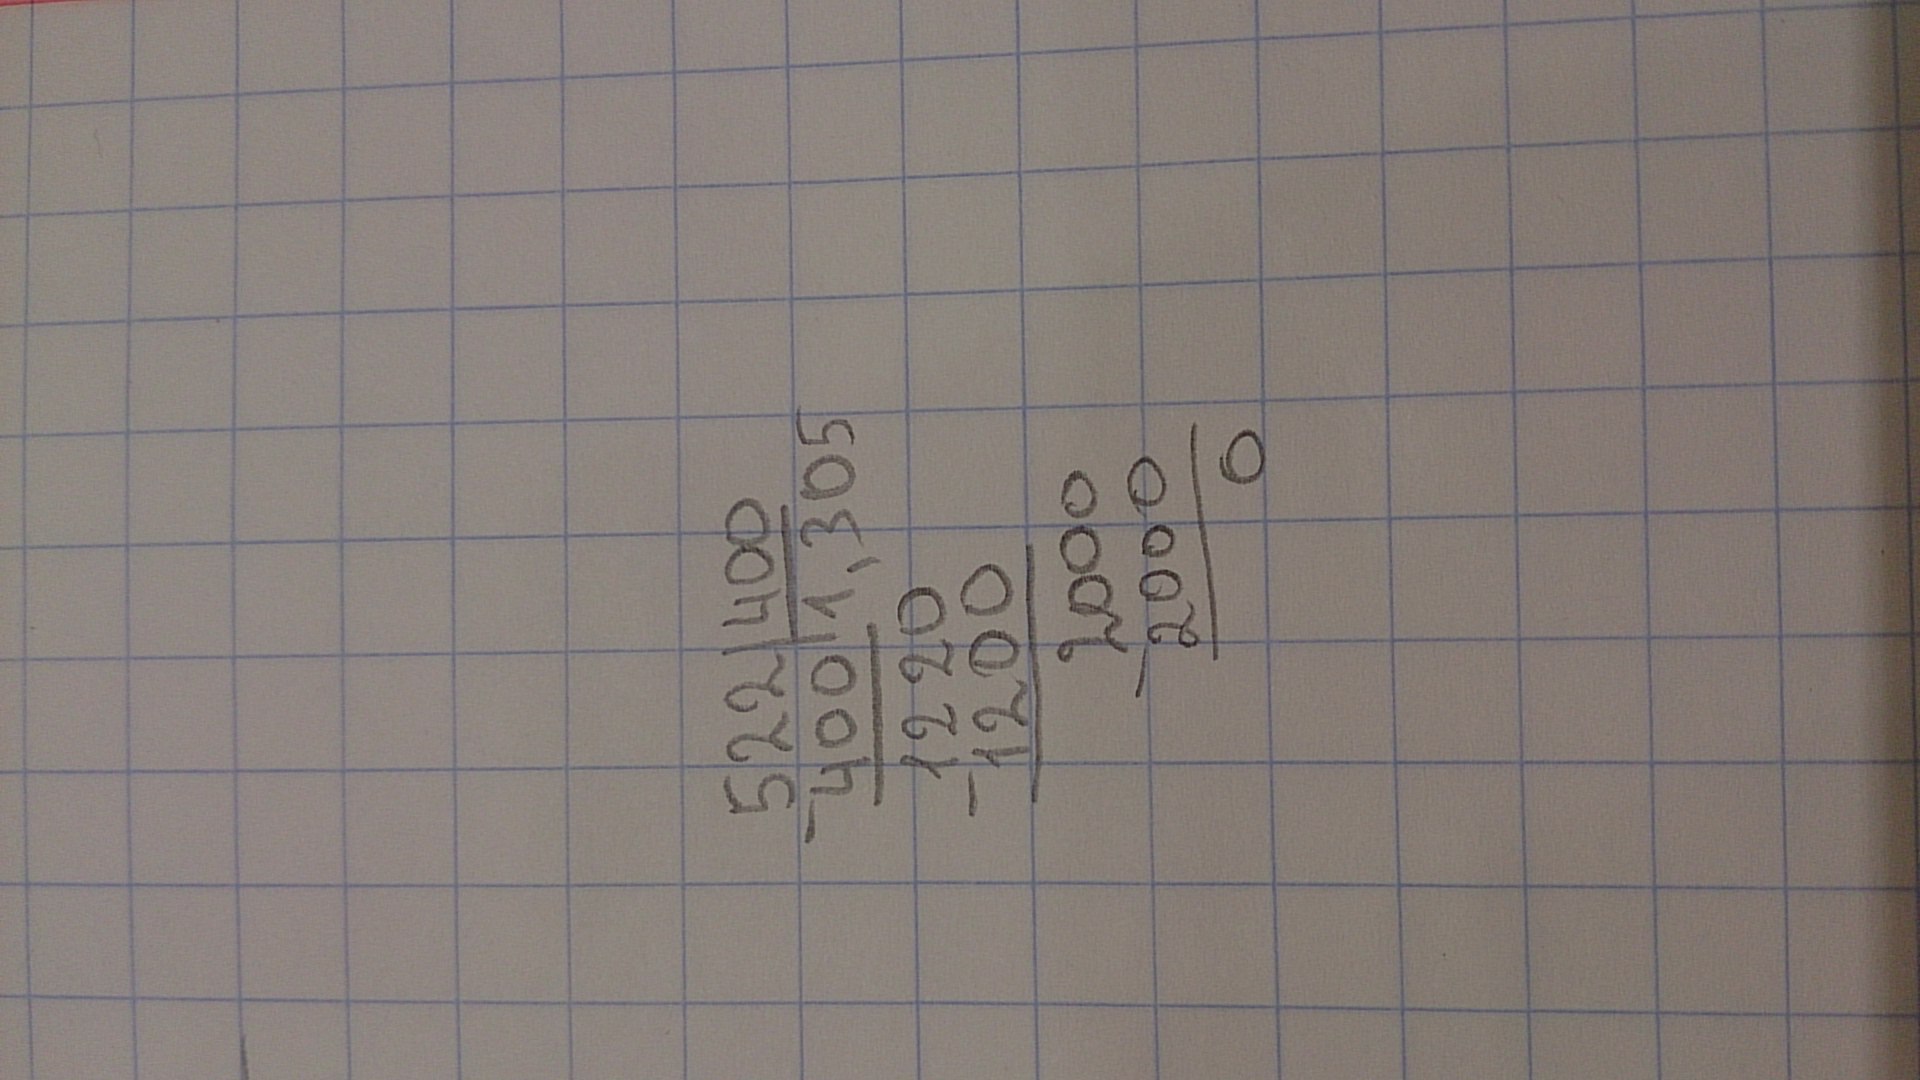 522|400
-400|1,305
1220
-1200
2000
-2000
0